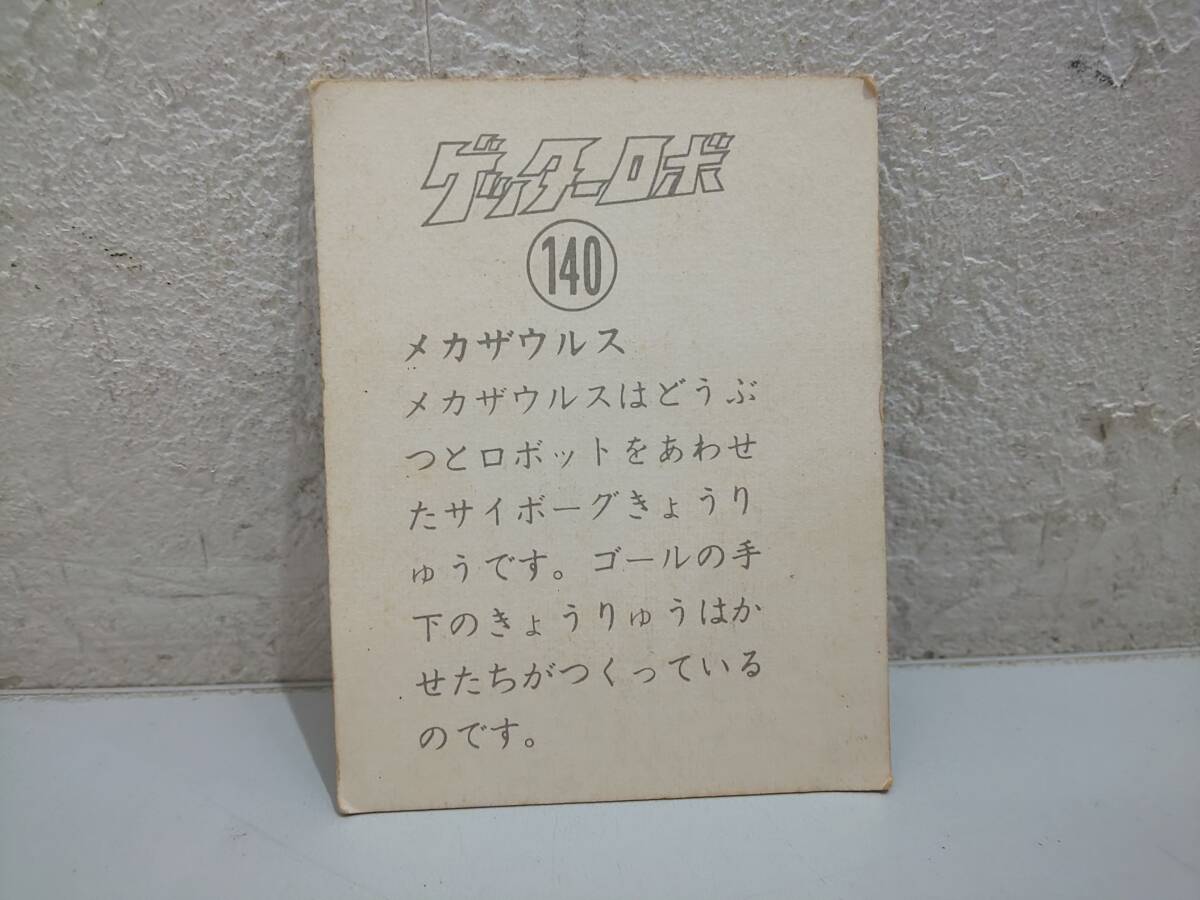 ゲッターロボ
140
メカザウルス
メカザウルスはどうぶ
つとロボットをあわせ
たサイボーグきょうり
ゅうです。ゴールの手
下のきょうりゅうはか
せたちがつくっている
のです。